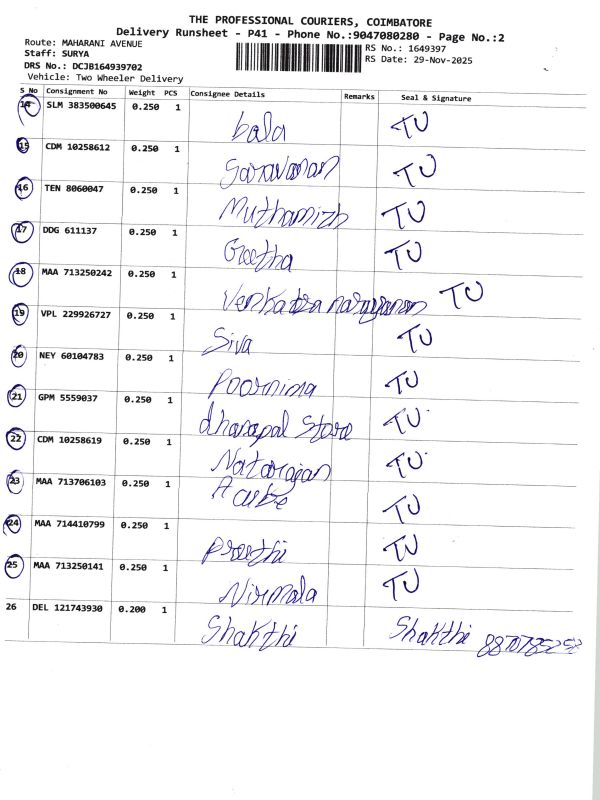 THE PROFESSIONAL COURIERS, COIMBATORE
Delivery Runsheet - P41 - Phone No.:9047080280 - Page No.:2
Route: MAHARANI AVENUE
RS No.: 1649397
Staff: SURYA
RS Date: 29-Nov-2025
DRS No.: DCJB164939702
Vehicle: Two Wheeler Delivery
S No Consignment No Weight PCS Consignee Details Remarks Seal & Signature
14 SLM 383500645 0.250 1 bala TU
15 CDM 10258612 0.250 1 Saravanan TU
16 TEN 8060047 0.250 1 Muthamizh TU
17 DDG 611137 0.250 1 Geetha TU
18 MAA 713250242 0.250 1 TU
19 VPL 229926727 0.250 1 Siva TU
20 NEY 60104783 0.250 1 Poornima TU
21 GPM 5559037 0.250 1 dhanapal Store TU
22 CDM 10258619 0.250 1 Natarajan TU
23 MAA 713706103 0.250 1 TU
24 MAA 714410799 0.250 1 Preethi TU
25 MAA 713250141 0.250 1 Nirmala TU
26 DEL 121743930 0.200 1 Shakthi Shakthi